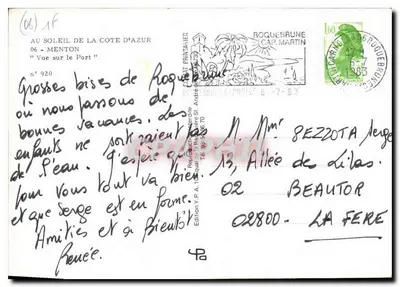 (06) 1F
AU SOLEIL DE LA COTE D'AZUR
06 - MENTON
"Vue sur le Port"
n° 920
ROQUEBRUNE
CAP MARTIN
1,60
1985
Grosses bises de Roquebrune
où nous passons de
bonnes vacances. Les
enfants ne sortiraient pas
de l'eau. J'espère que
pour vous tout va bien
et que Serge est en forme.
Amitiés et à Bientôt
Renée.
M. Mme BEZZOTA Serge
13, Allée des Lilas.
02 BEAUTOR
02800 - LA FERE